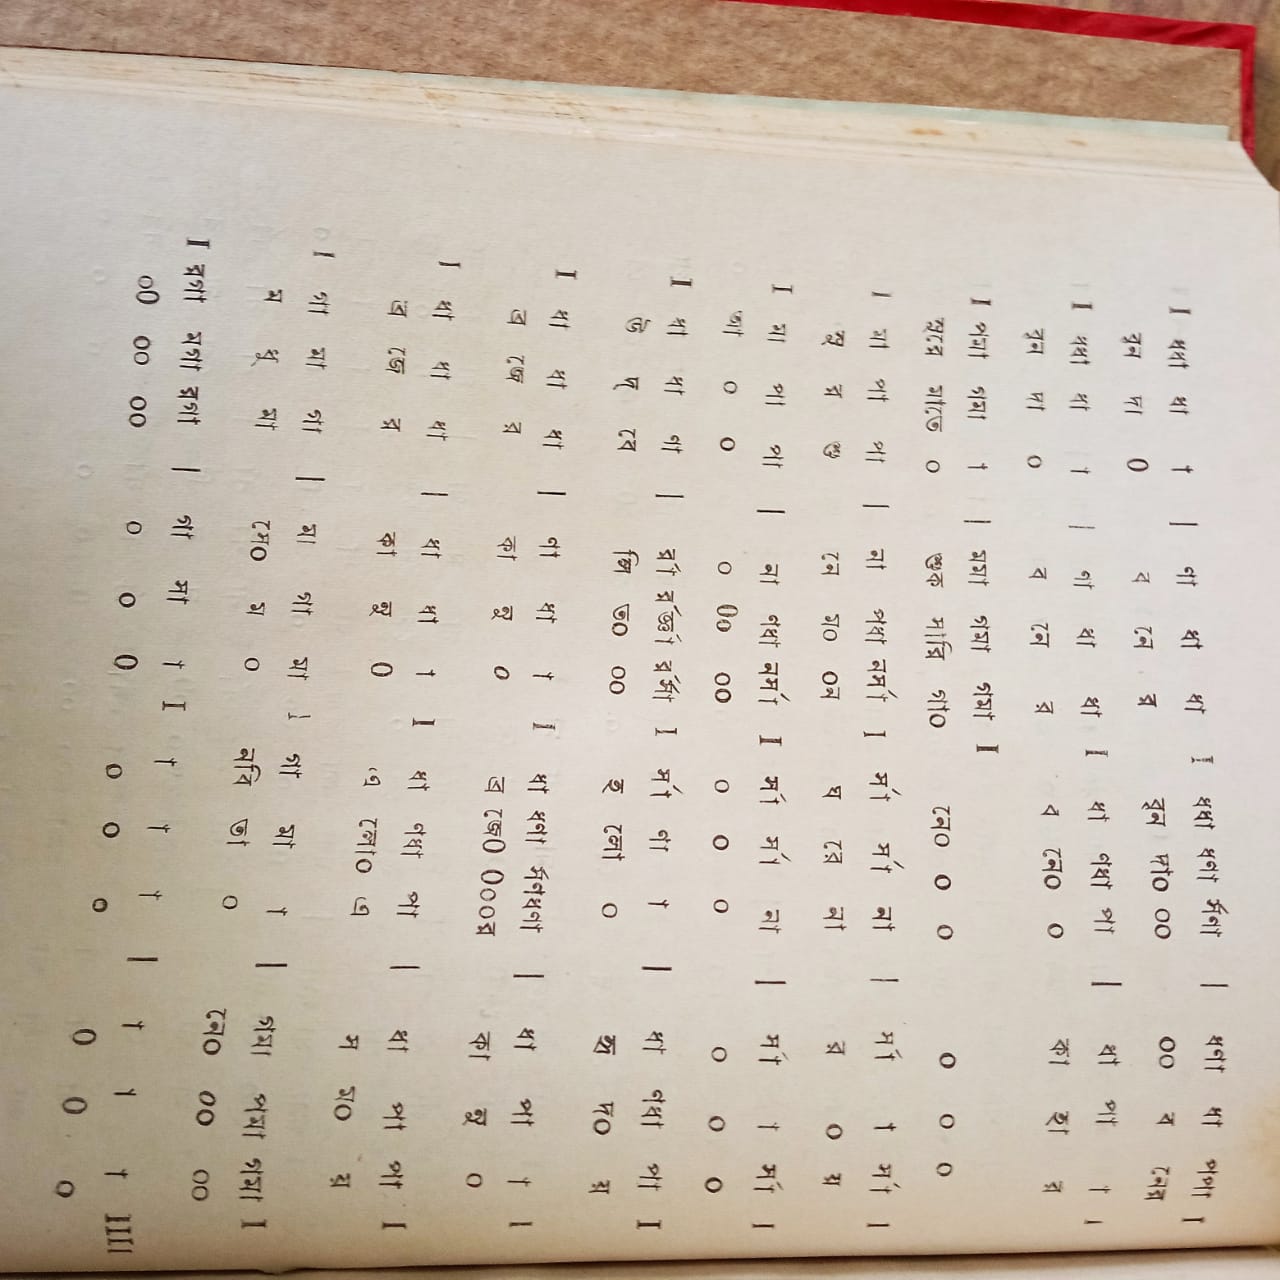 I ধধা ধা া | ণা ধা ধা I ধধা ধণা র্সণা | ধণা ধা পপা I
বুন দা 0 ব নে র বুন দা০ ০০ ০০ ব নের
I ধধা ধা া | ণা ধা ধা I ধা পধা পা | ধা পা া I
বুন দা ০ ব নে র ব নে০ ০ কা হা র
I পমা পমা া | মমা পমা পমা I
সুরে মাতে ০ শুক সারি গা০ নে০ ০ ০ ০ ০ ০
I মা পা পা | না পধা নর্সা I র্সা র্সা না | র্সা া র্সা I
সু র শু নে ম০ ০ন ঘ রে না র ০ য়
I মা পা পা | না পধা নর্সা I র্সা র্সা না | র্সা া র্সা I
আ ০ ০ ০ ০০ ০০ ০ ০ ০ ০ ০ ০
I ধা ধা ণা | র্রা র্রর্জ্ঞা র্রর্সা I র্সা ণা া | ধা পধা পা I
উ দ্ বে লি ত০ ০০ হ লো ০ হৃ দ০ য়
I ধা ধা ধা | ণা ধা া I ধা ধণা র্সণধণা | ধা পা া I
ব্র জে র কা নু ০ ব্র জে০ ০০০র কা নু ০
I ধা ধা ধা | ধা ধা া I ধা পধা পা | ধা পা পা I
ব্র জে র কা নু ০ এ লো০ এ স ম০ য়
I গা মা গা | মা গা মা I গা মা া | গমা পমা গমা I
ম ধু মা সে০ ম ০ নবি তা ০ নে০ ০০ ০০
I রগা মগা রগা | গা সা া I া া া | া া া IIII
০০ ০০ ০০ ০ ০ ০ ০ ০ ০ ০ ০ ০